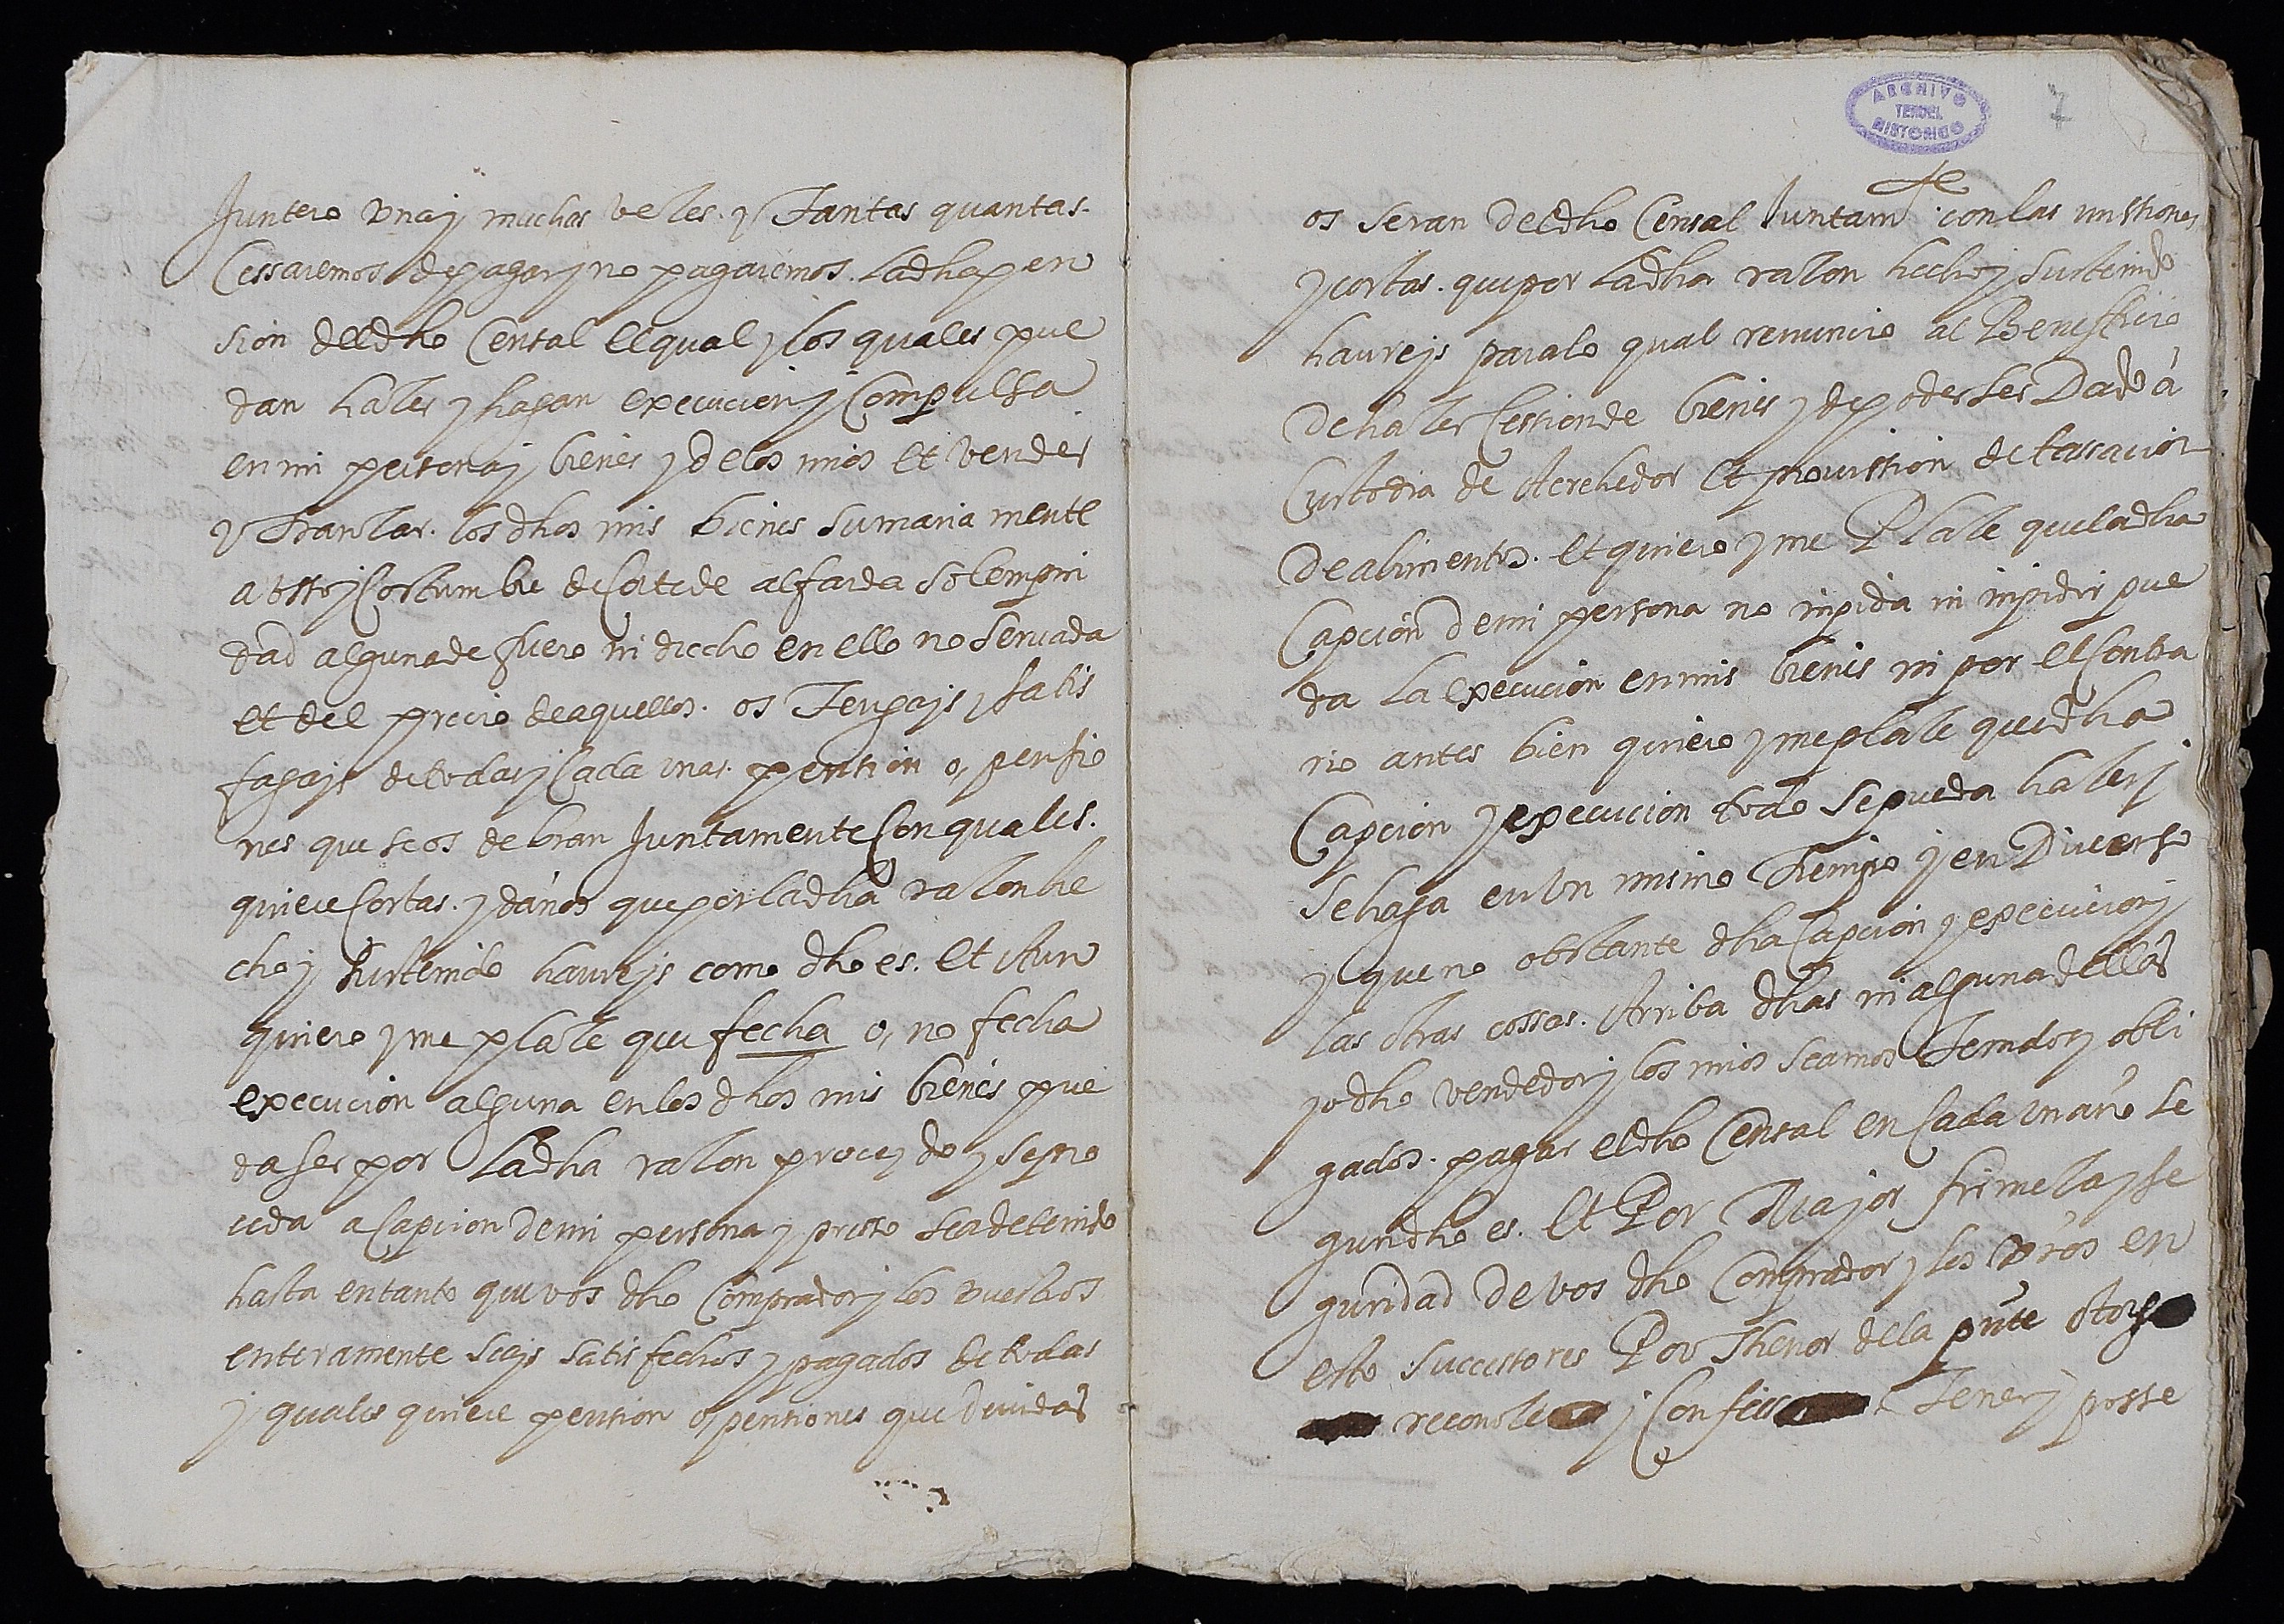 Juntero vna y muchas vezes. y Tantas quantas.
Cessaremos de pagar y no pagaremos. La dha pen
sion del dho Censal el qual y los quales pue
dan hazer y hagan execucion y Compulssa
en mi persona y bienes y de los mios et vender
y Tranzar. los dhos mis bienes sumaria mente
a vsso y Costumbre de Corte de alfarda solempni
dad alguna de fuero ni drecho en ello no seruada
et del precio de aquellos. os Tengays y satis
fagays de todas y Cada vnas. pension o, pensio
nes que se os debran Juntamente Con quales.
quiere Costas. y daños que por la dha razon he
cho y sustenido haureys como dho es. et Aun
quiero y me plaze que fecha o, no fecha
execucion alguna en los dhos mis bienes pue
da ser por La dha razon proceydo y se pro
ceda a Capcion de mi persona y presso sea detenido
hasta en tanto que vos dho Comprador y los vuestros
enteramente seays satisfechos y pagados de todas
y quales quiere pension o, pensiones que deuidas
ARCHIVO
TERUEL
HISTORICO
7
os seran del dho Censal Juntamte con las missiones
y costas. que por La dha razon hecho y sustenido
haureys para lo qual renuncio al Beneficio
de hazer Cession de bienes y de poder ser Dado á
Custodia de Acrehedor et prouission de tassacion
de alimentos. et quiero y me Plaze que la dha
Capcion de mi persona no inpida ni inpidir pue
da La execucion en mis bienes ni por el Contra
rio antes bien quiero y me plaze que dha
Capcion y execucion todo se pueda hazer y
se haga en vn mismo Tiempo y en Diuerso
y que no obstante dha Capcion y execucion y
las otras cossas. Arriba dhas ni alguna dellas
yo dho vendedor y los mios seamos Tenidos y obli
gados. pagar el dho Censal en Cada vn año se
gun dho es. Et Por Major firmeza y se
guridad de vos dho Comprador y los vros en
esto successores Por Thenor de la pnte otorgo
reconoze y Confies Tener y posse